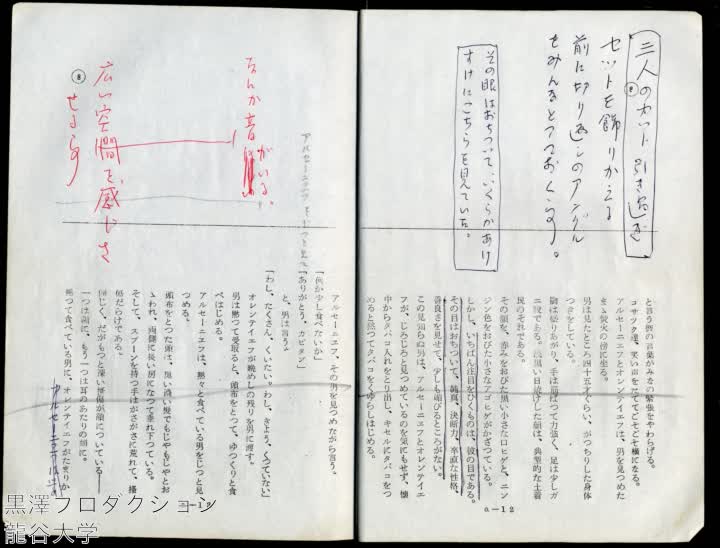 三人のカット 引き過ぎ
セットを飾りかえる
前に切り返しのアングル
をみんなとっておく事。
その眼はおちついて、いくらかあけ
すけにこちらを見ていた。
と言う彼の言葉がみなの緊張をやわらげる。
コサック達、笑い声を立ててごそごそ横になる。
アルセーニエフとオレンテイエフは、男を見つめた
まま焚火の傍に坐る。
男は見たところ四十五才ぐらい、がっちりした身体
つきをしている。
胸は切りあがり、手は筋ばって力強く、足は少しガ
ニ股である。浅黒い日焼けした顔は、典型的な土着
民のそれである。
その顔を、赤みをおびた黒い小さな口ヒゲと、ニン
ジン色をおびた小さなアゴヒゲがかざっている。
しかし、いちばん注目をひくものは、彼の目である。
その目はおちついて、純真、決断力、卒直な性格、
善良さを見せて、少しも媚びるところがない。
この見知らぬ男は、アルセーニエフとオレンテイエ
フが、じろじろと見つめているのを気にもせず、懐
中からタバコ入れをとり出し、キセルにタバコをつ
めると黙ってタバコをくゆらしはじめる。
a-12
なんか音がいる。
広い空間を感じさ
せる事
⑧
アルセーニエフをじっと見て
アルセーニエフ、その男を見つめながら言う。
「何か少し食べたいか」
「ありがとう、カピタン」
と、男は言う。
「わし、たくさん、くいたい。わし、きょう、くっていない」
オレンテイエフが晩めしの残りを男に渡す。
男は黙って受取ると、頭布をとって、ゆっくりと食
べはじめる。
アルセーニエフは、黙々と食べている男をじっと見
つめる。
頭布をとった頭は、黒い濃い髪でもじゃもじゃとお
おわれ、両側に長い房になって垂れ下っている。
そして、スプーンを持つ手はがさがさに荒れて、掻
傷だらけである。
同じく、だがもっと深い掻傷が顔についている――
一つは額に、もう一つは耳のあたりの頬に。
黙って食べている男に、オレンテイエフがたまりか
アルセーニエフ
黒澤プロダクション
龍谷大学